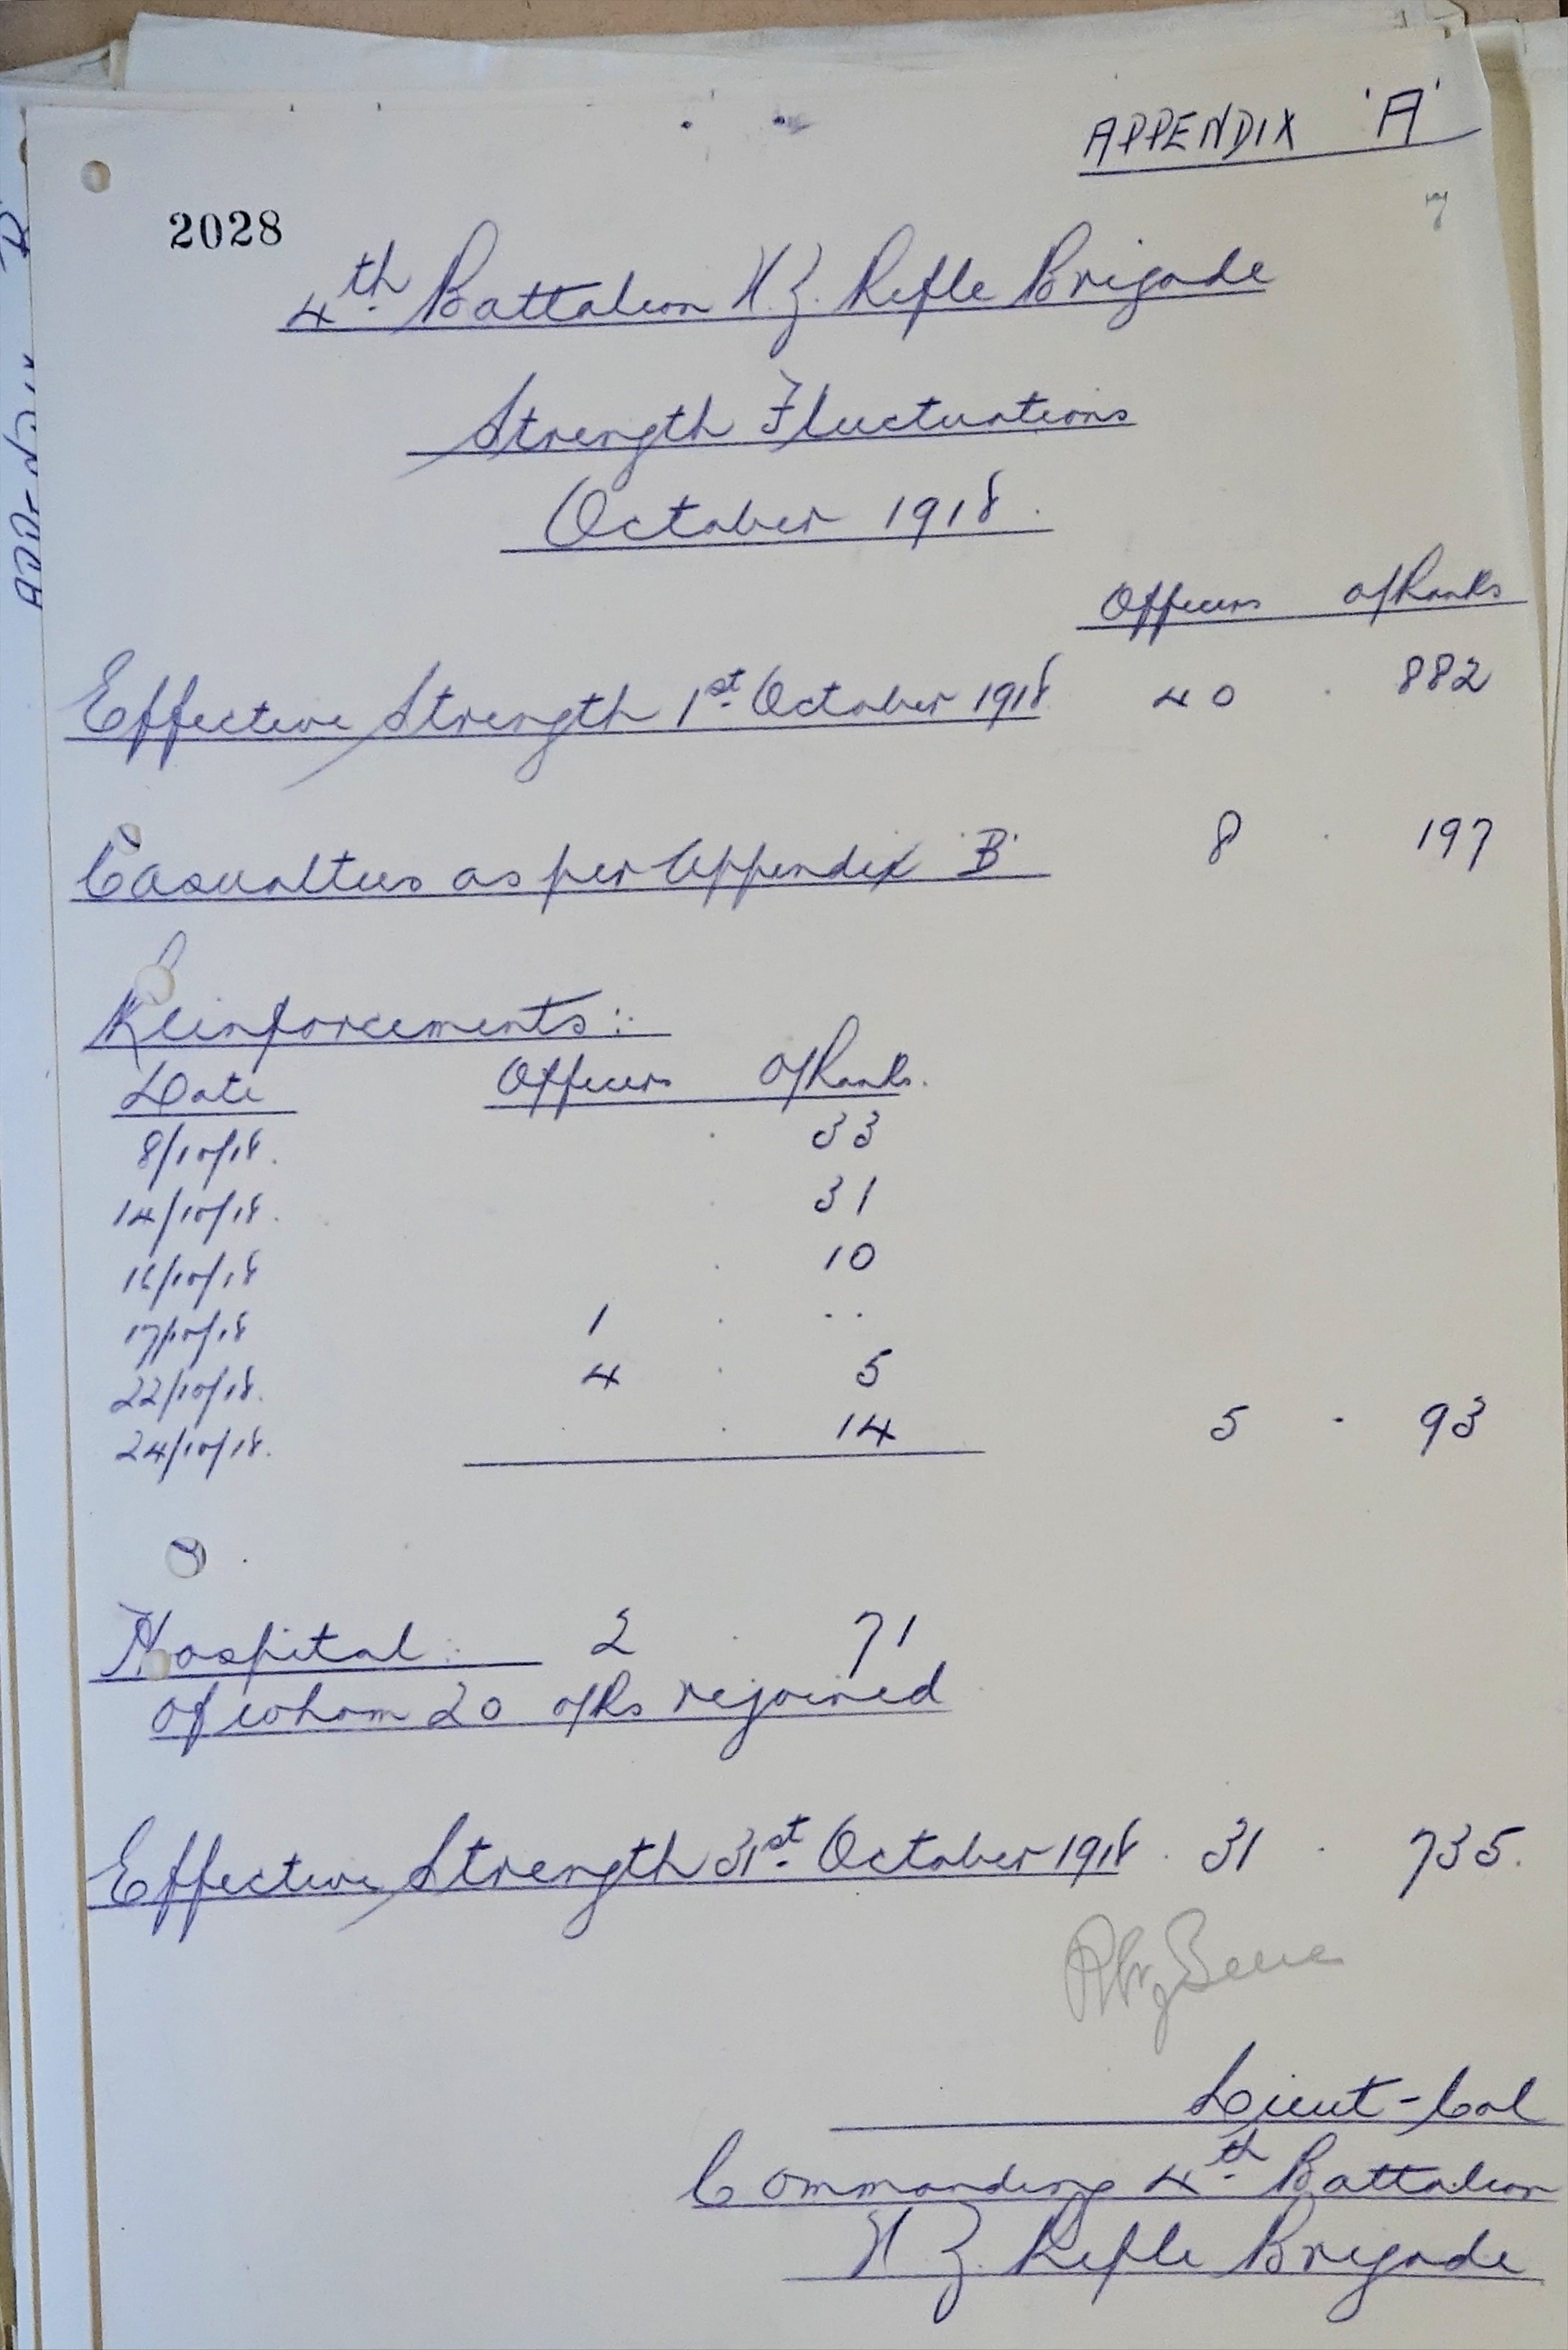 APPENDIX 'A'
7
2028
4th Battalion N.Z. Rifle Brigade
Strength Fluctuations
October 1918.
Officers o/Ranks
Effective Strength 1st October 1918 40 . 882
Casualties as per Appendix 'B' 8 . 197
Reinforcements:
Date Officers O/Ranks.
8/10/18. . 33
14/10/18. . 31
16/10/18 . 10
17/10/18 1 . ..
22/10/18. 4 . 5
24/10/18. . 14 5 - 93
Hospital: 2 . 71
of whom 20 o/Rs rejoined
Effective Strength 31st October 1918. 31 . 735.
Lieut-Col
Commanding 4th Battalion
N.Z. Rifle Brigade